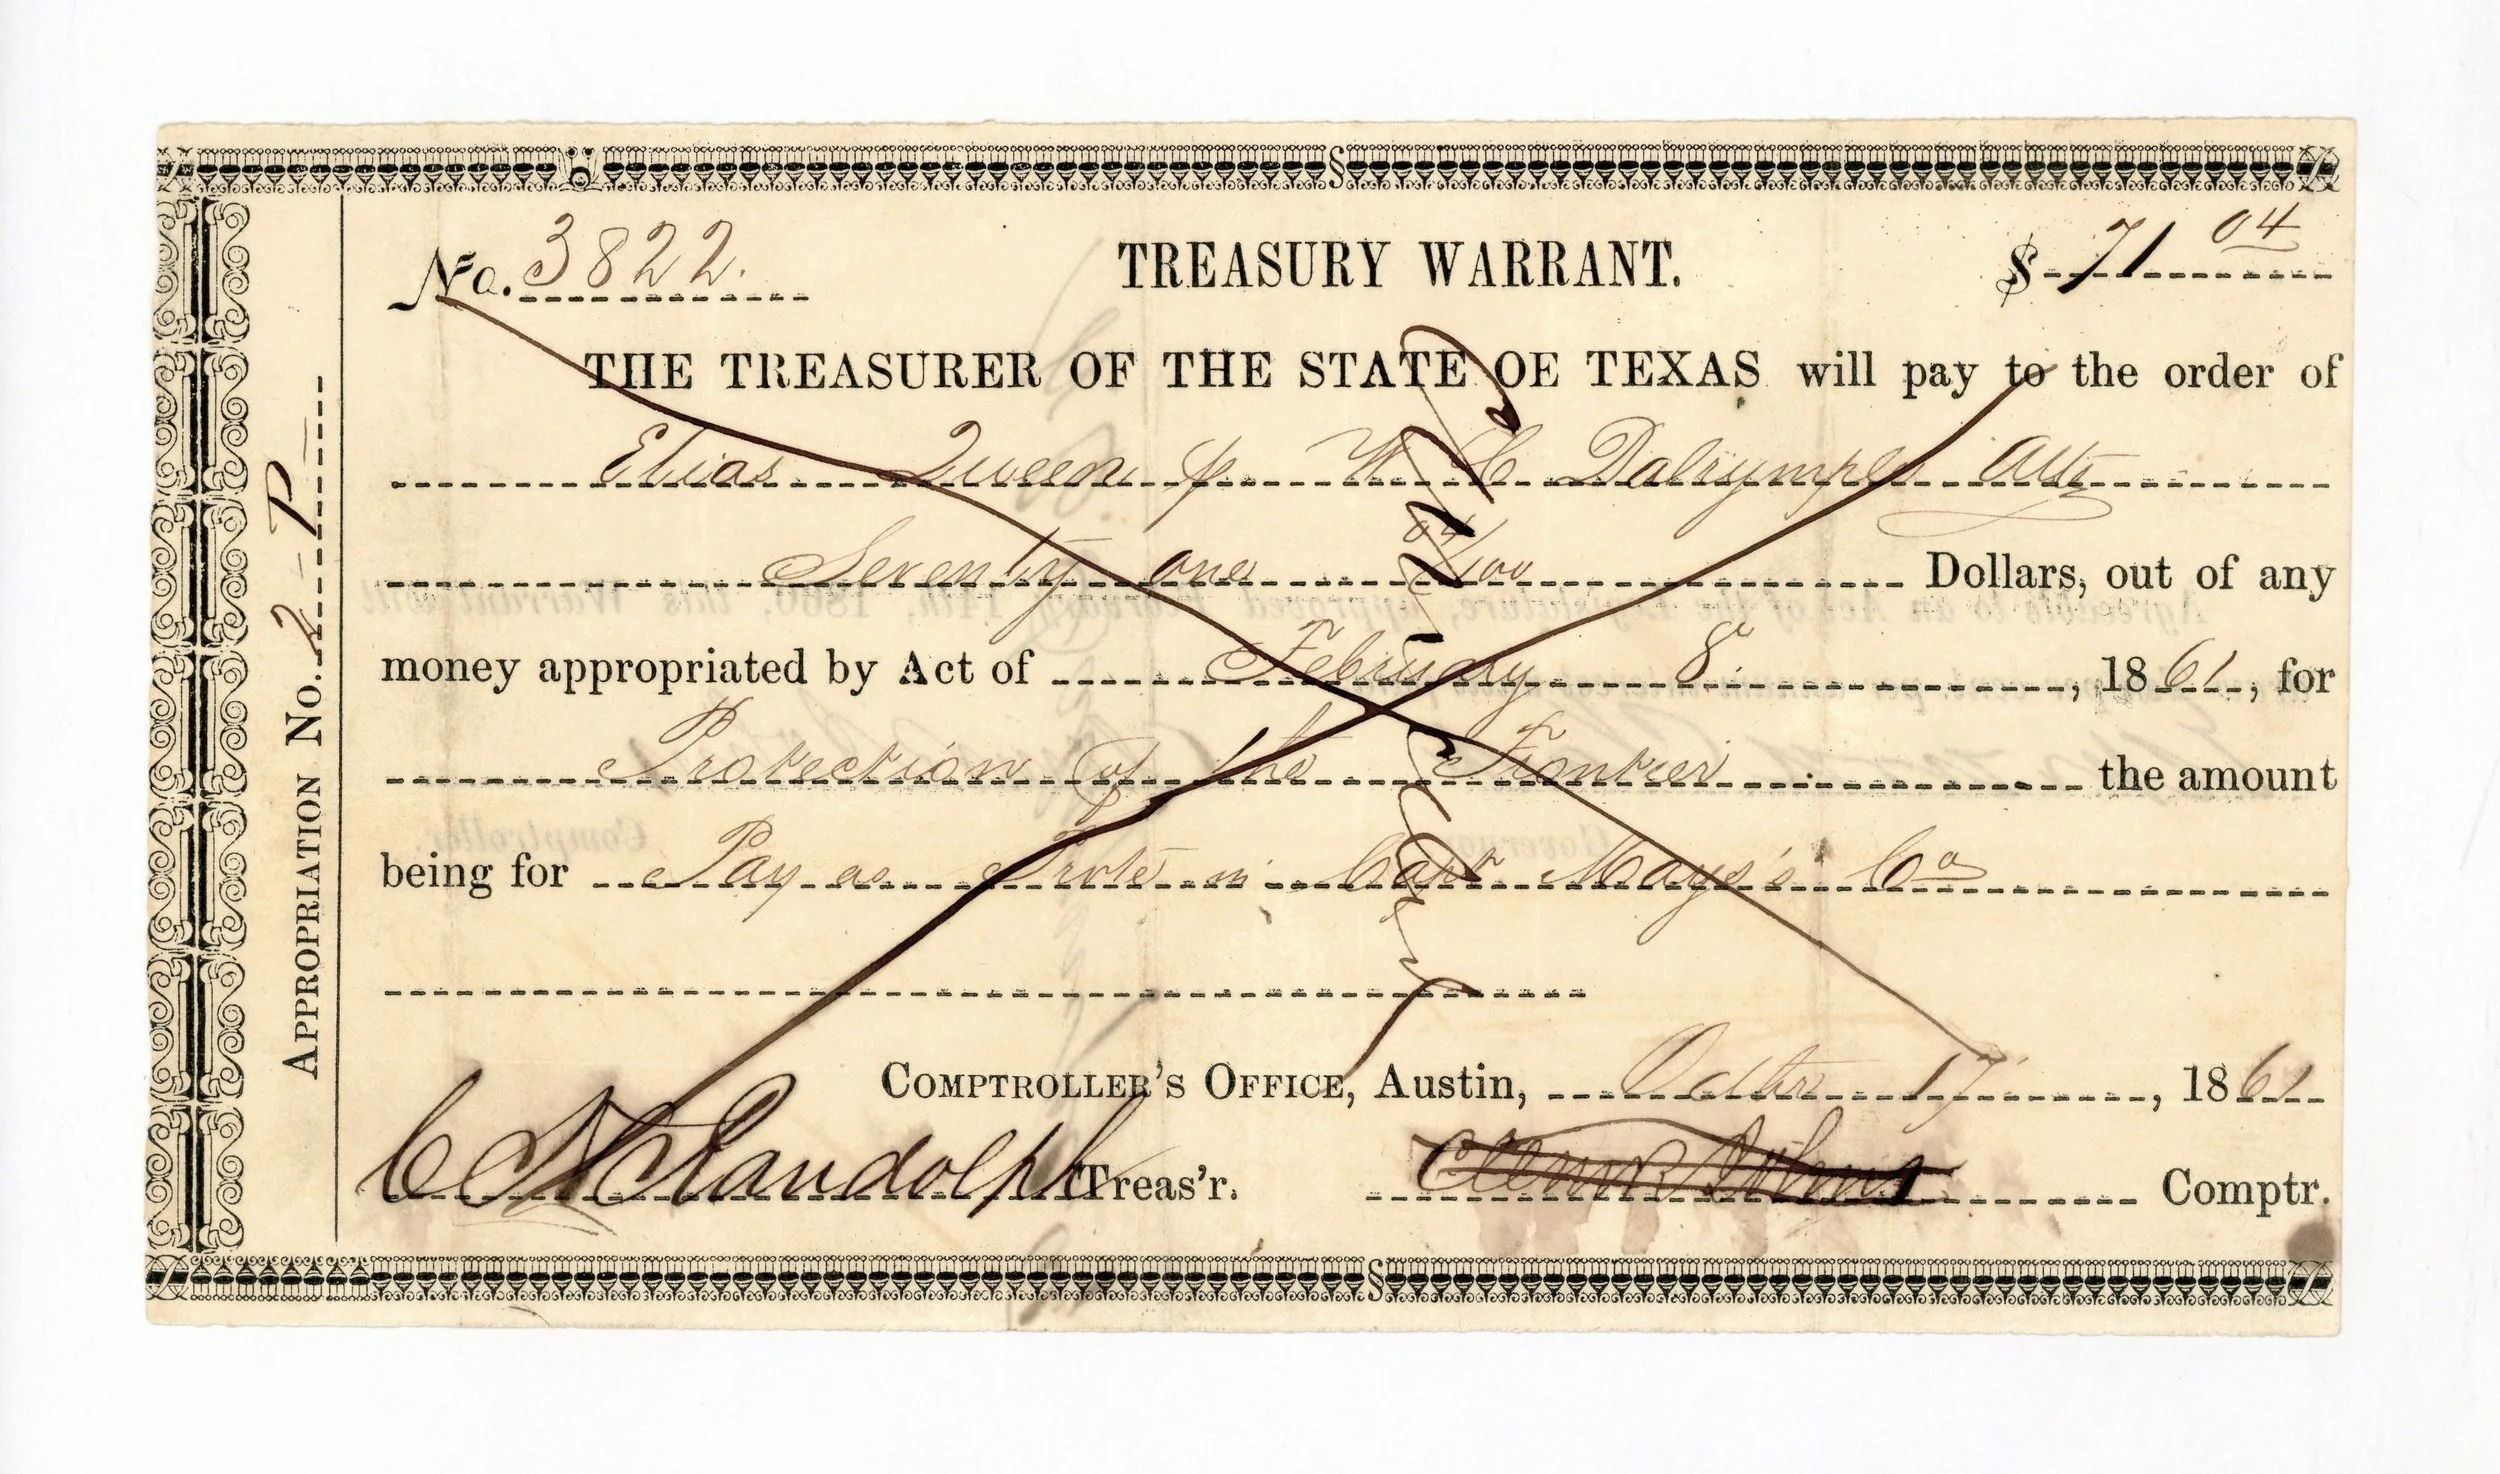 No. 3822. TREASURY WARRANT. $ 71 04
THE TREASURER OF THE STATE OF TEXAS will pay to the order of
Elias Queen p. W C Dalrymple Atty
Seventy one 04/100 Dollars, out of any
money appropriated by Act of February 8", 1861, for
Protection of the Frontier the amount
being for Pay as Prvte in Capt Mays's Co
COMPTROLLER'S OFFICE, Austin, Octbr 17, 1861
C H Randolph Treas'r. Clem R Johns Comptr.
APPROPRIATION No. 2 - P